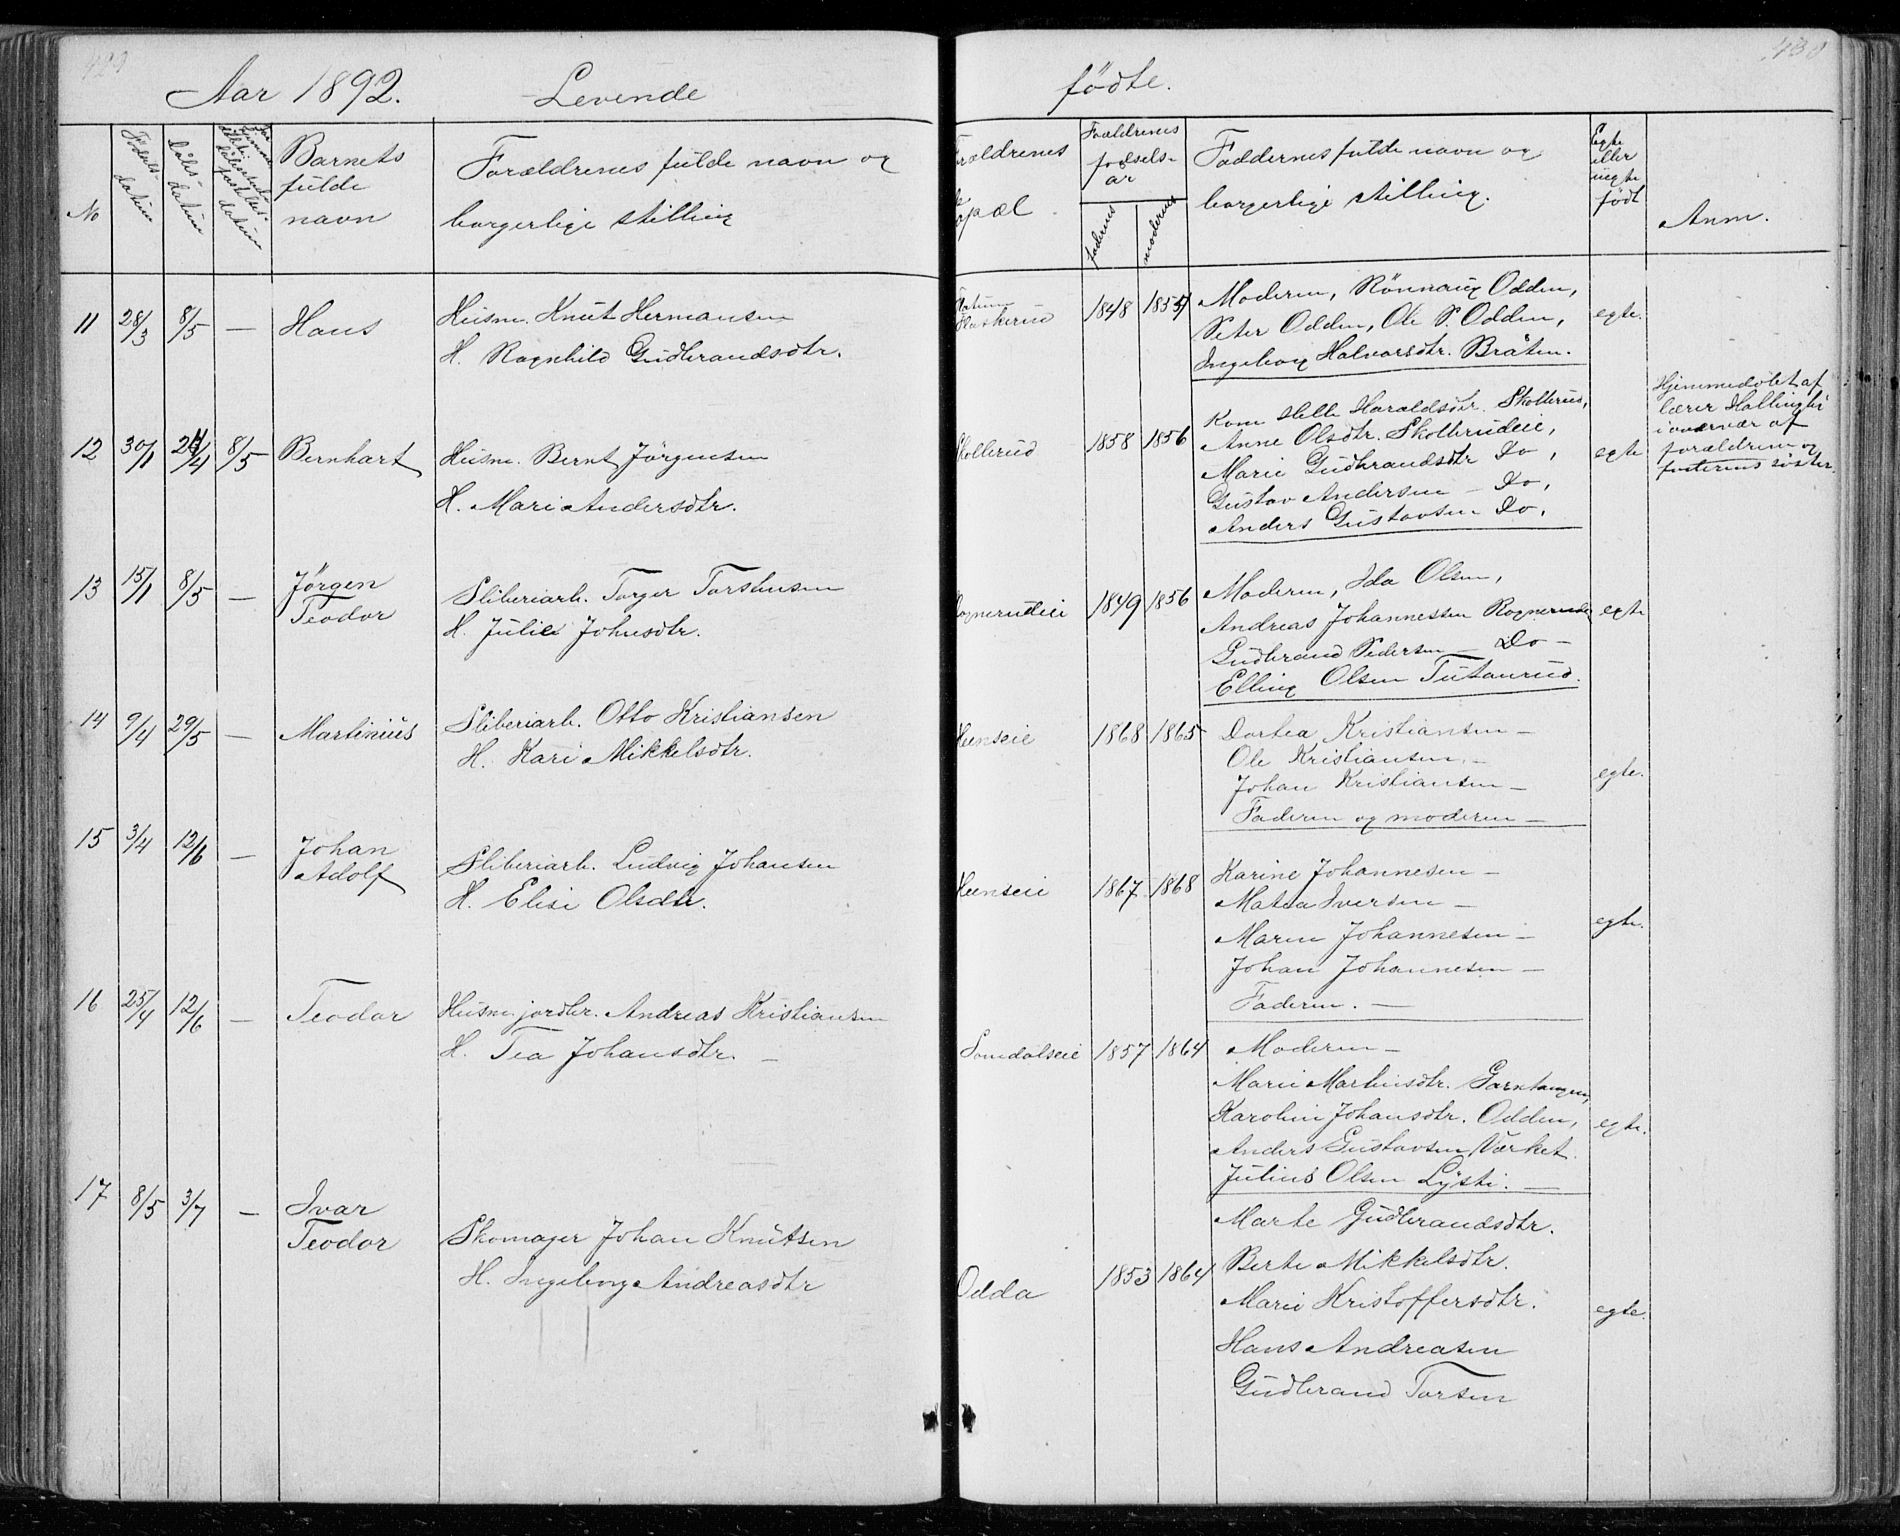 429
Aar 1892.
Levende
No
Fødsels-
datum
Dåbs-
datum
Barnets
fulde
navn
Forældrenes fulde navn og
borgerlige stilling
11
28/3
8/5
—
Hans
Husm. Knut Hermansen
H. Ragnhild Gudbrandsdtr.
12
30/1
24/4
8/5
Bernhart
Husm. Bernt Jörgensen
H. Mari Andersdtr.
13
15/1
8/5
—
Jörgen
Teodor
Sliberiarb. Torger Torstensen
H. Julie Johnsdtr.
14
9/4
29/5
—
Martinius
Sliberiarb. Otto Kristiansen
H. Kari Mikkelsdtr.
15
3/4
12/6
—
Johan
Adolf
Sliberiarb. Ludvig Johansen
H. Elise Olsdtr.
16
25/4
12/6
—
Teodor
Husm. jordbr. Andreas Kristiansen
H. Tea Johansdtr. —
17
8/5
3/7
—
Ivar
Teodor
Skomager Johan Knutsen
H. Ingeborg Andreasdtr
430
fødte.
Forældrenes
opæl
Forældrenes
fødsels-
år
faderens
moderens
Faddernes fulde navn og
borgerlige stilling.
Egte
eller
uegte
født
Anm.
1848
1854
Moderen, Rönnaug Odden,
Peter Odden, Ole P. Odden,
Ingeborg Halvorsdtr. Bråten.
egte.
Skollerud
1858
1856
Kone Helle Haraldsdtr. Skollerud,
Anne Olsdtr. Skollerudeie,
Marie Gudbrandsdtr Do,
Gustav Andersen — Do,
Anders Gustavsen Do.
egte
Hjemmedøbt af
lærer Hallingby
i overvær af
forældrene og
søster.
Rognerudeie
1849
1856
Moderen, Ida Olsen,
Andreas Johannessen Rognerudei
Gudbrand Pedersen — Do —
Elling Olsen Tutanrud.
egte
Heenseie
1868
1865
Dortea Kristiansen —
Ole Kristiansen. —
Johan Kristiansen —
Faderen og moderen —
egte.
Heenseie
1867
1868
Karine Johannesen —
Matea Iversen —
Maren Johannesen —
Johan Johannesen —
Faderen. —
egte.
Somdalseie
1857
1864
Moderen —
Marie Martinsdtr. Garntangen,
Karoline Johansdtr. Odden,
Anders Gustavsen Værket
Julius Olsen Lysti. —
egte.
Odda
1853
1864
Marte Gudbrandsdtr.
Berte Mikkelsdtr.
Marie Kristoffersdtr.
Hans Andreasen
Gudbrand Torsen
egte.